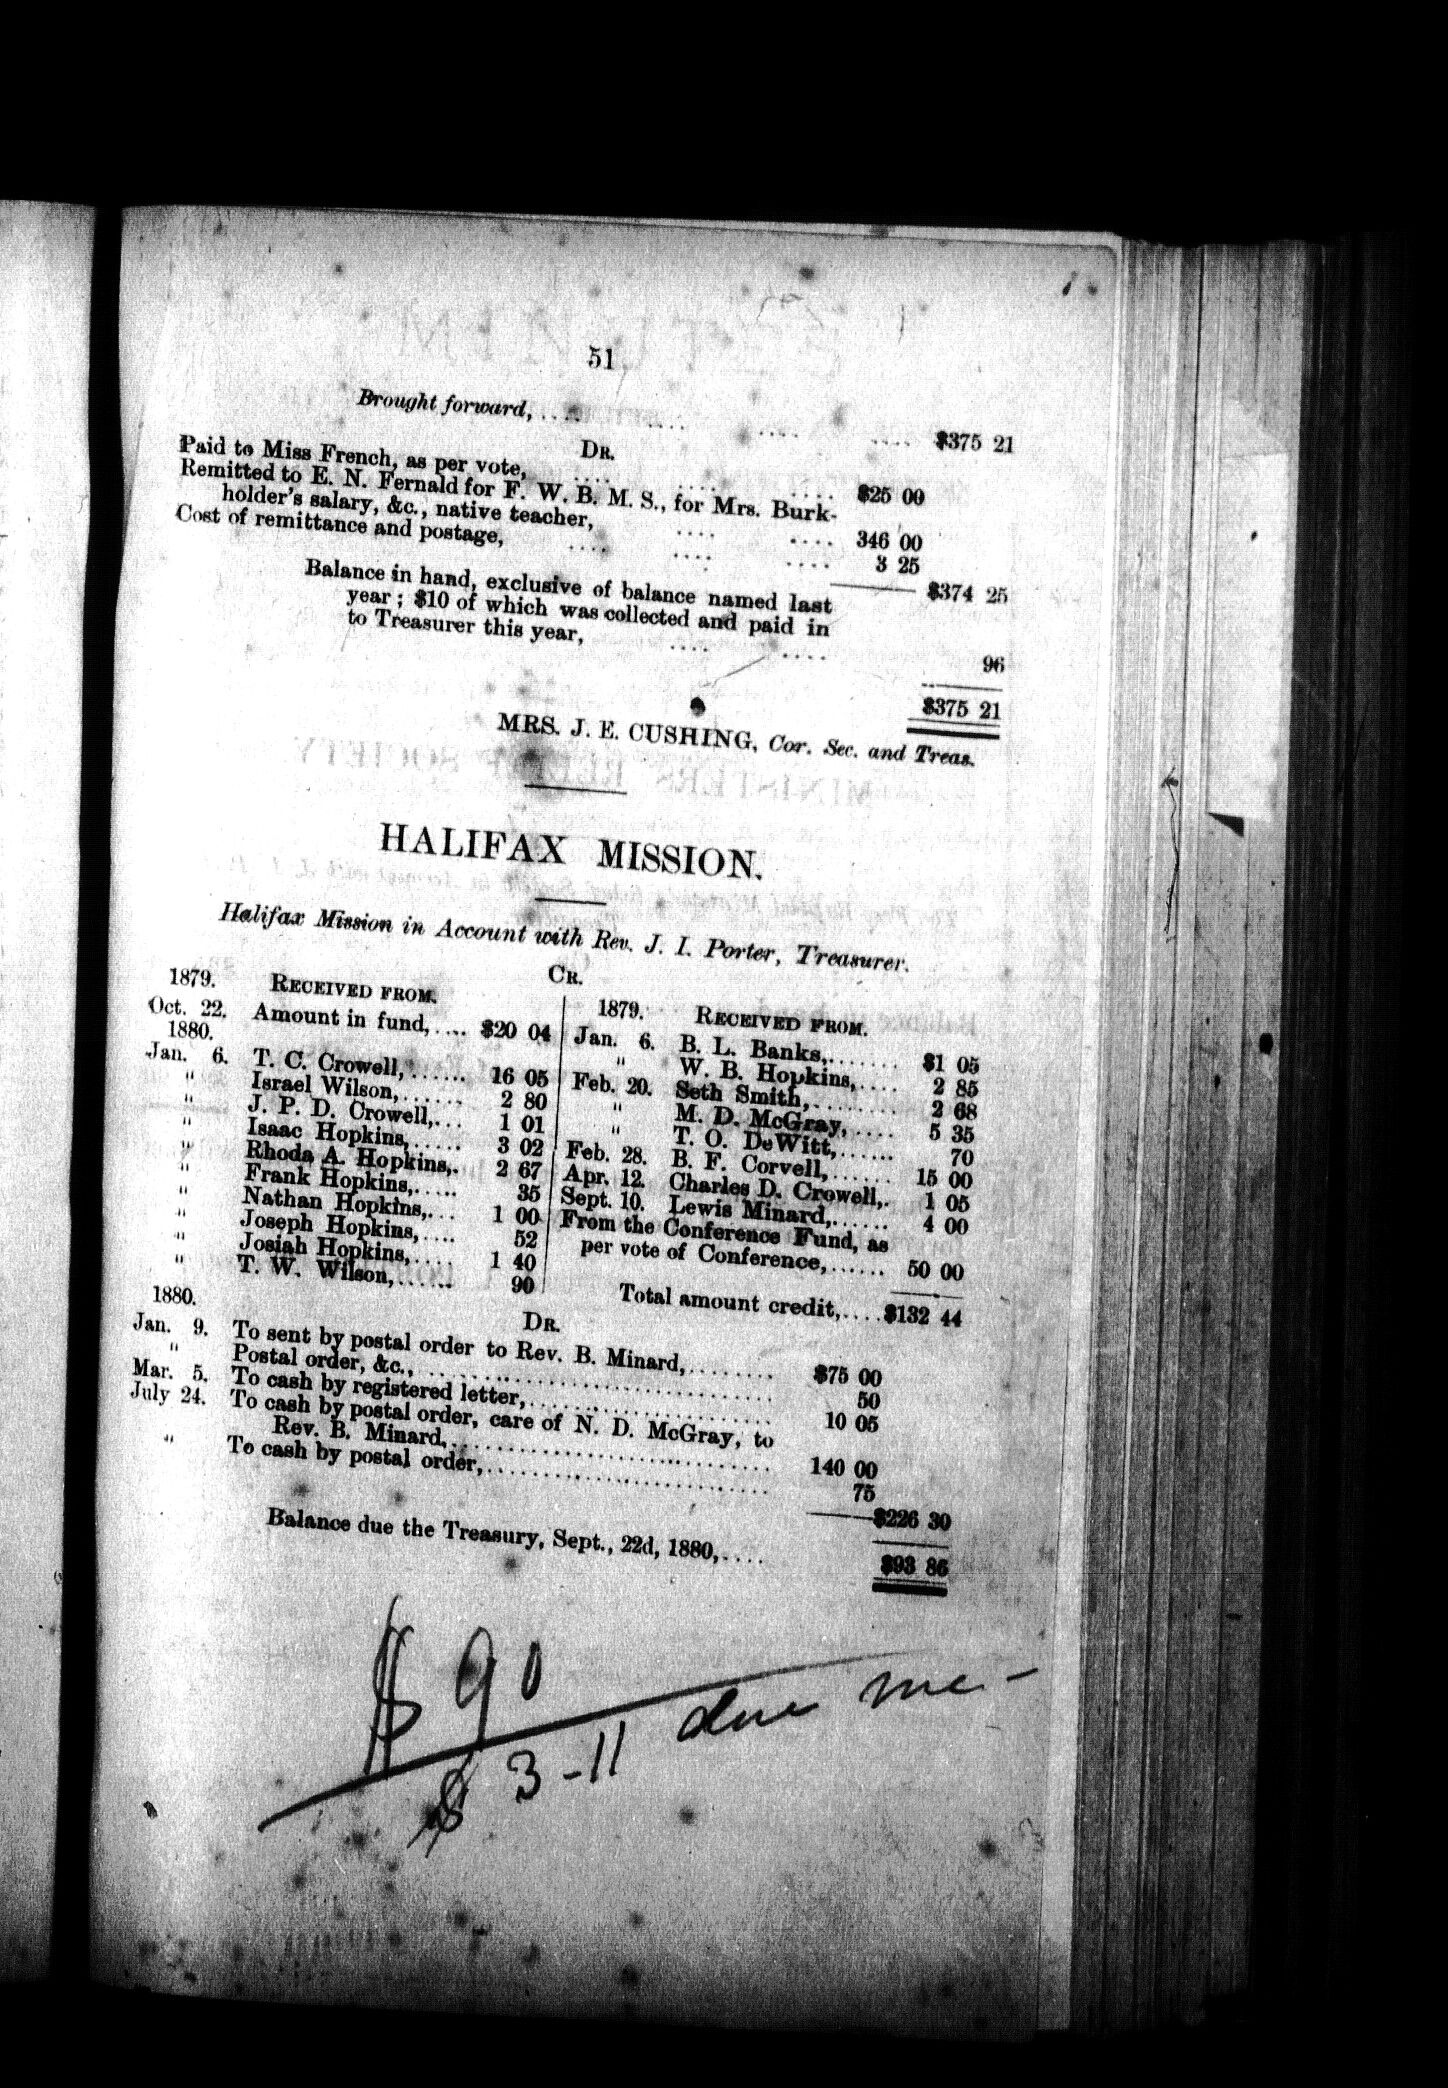 51
Brought forward, .... .... .... .... $375 21
DR.
Paid to Miss French, as per vote, .... .... .... $25 00
Remitted to E. N. Fernald for F. W. B. M. S., for Mrs. Burk-
holder's salary, &c., native teacher, .... .... 346 00
Cost of remittance and postage, .... .... .... 3 25
$374 25
Balance in hand, exclusive of balance named last
year; $10 of which was collected and paid in
to Treasurer this year, .... .... 96
$375 21
MRS. J. E. CUSHING, Cor. Sec. and Treas.
HALIFAX MISSION.
Halifax Mission in Account with Rev. J. I. Porter, Treasurer.
CR.
1879. RECEIVED FROM.
Oct. 22. Amount in fund,.... $20 04
1880.
Jan. 6. T. C. Crowell,...... 16 05
" Israel Wilson,...... 2 80
" J. P. D. Crowell,... 1 01
" Isaac Hopkins,..... 3 02
" Rhoda A. Hopkins,. 2 67
" Frank Hopkins,..... 35
" Nathan Hopkins,... 1 00
" Joseph Hopkins,.... 52
" Josiah Hopkins,.... 1 40
" T. W. Wilson,...... 90
1879. RECEIVED FROM.
Jan. 6. B. L. Banks,....... $1 05
" W. B. Hopkins,.... 2 85
Feb. 20. Seth Smith,........ 2 68
" M. D. McGray,.... 5 35
" T. O. DeWitt,...... 70
Feb. 28. B. F. Corvell,...... 15 00
Apr. 12. Charles D. Crowell,. 1 05
Sept. 10. Lewis Minard,...... 4 00
From the Conference Fund, as
per vote of Conference,...... 50 00
Total amount credit,....$132 44
DR.
1880.
Jan. 9. To sent by postal order to Rev. B. Minard,........ $75 00
" Postal order, &c.,.................................. 50
Mar. 5. To cash by registered letter,........................ 10 05
July 24. To cash by postal order, care of N. D. McGray, to
Rev. B. Minard,................................ 140 00
" To cash by postal order,............................ 75
$226 30
Balance due the Treasury, Sept., 22d, 1880,.... $93 86
$ 90
$ 3-11 due me -